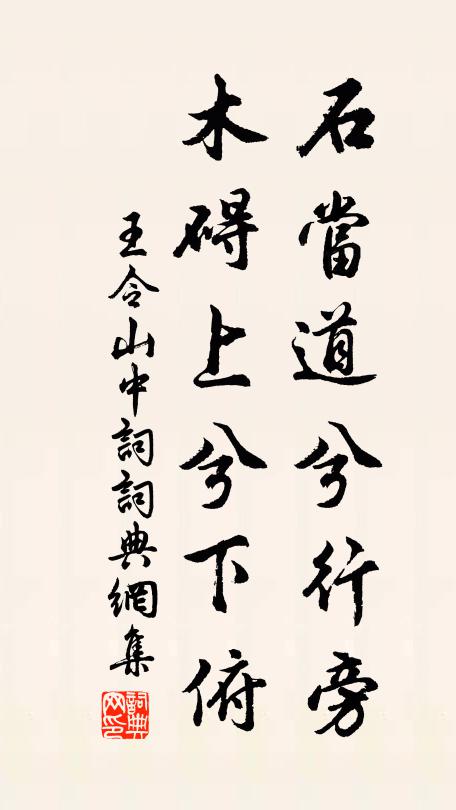 石當道兮行旁
木碍上兮下俯
王令山中詞詞典網集
詞典
网印